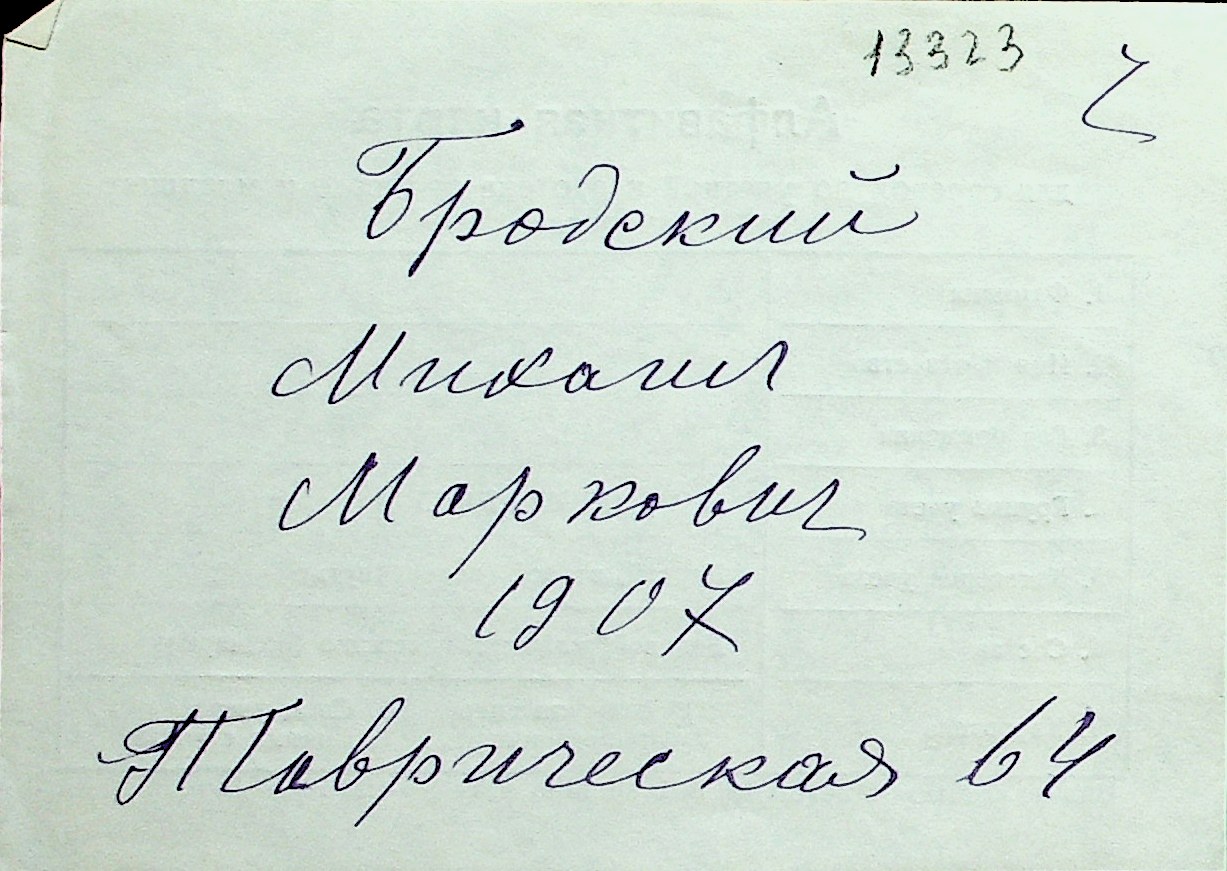 13323
Бродский
Михаил
Маркович
1907
Таврическая 64